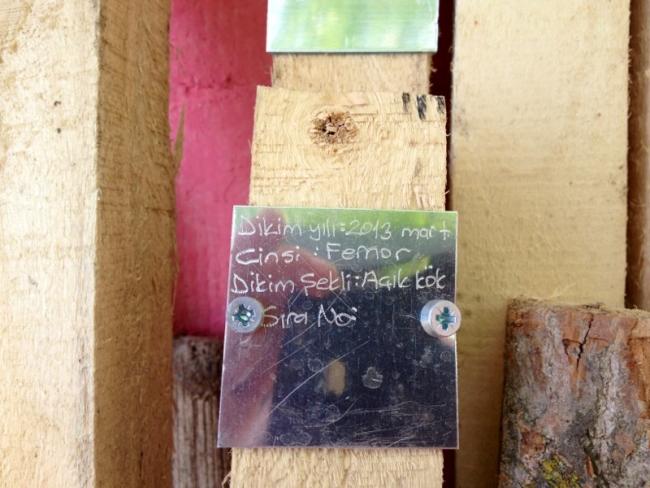 Dikim yılı:2013 mart
Cinsi : Femor
Dikim Şekli:Açık kök
Sıra No: